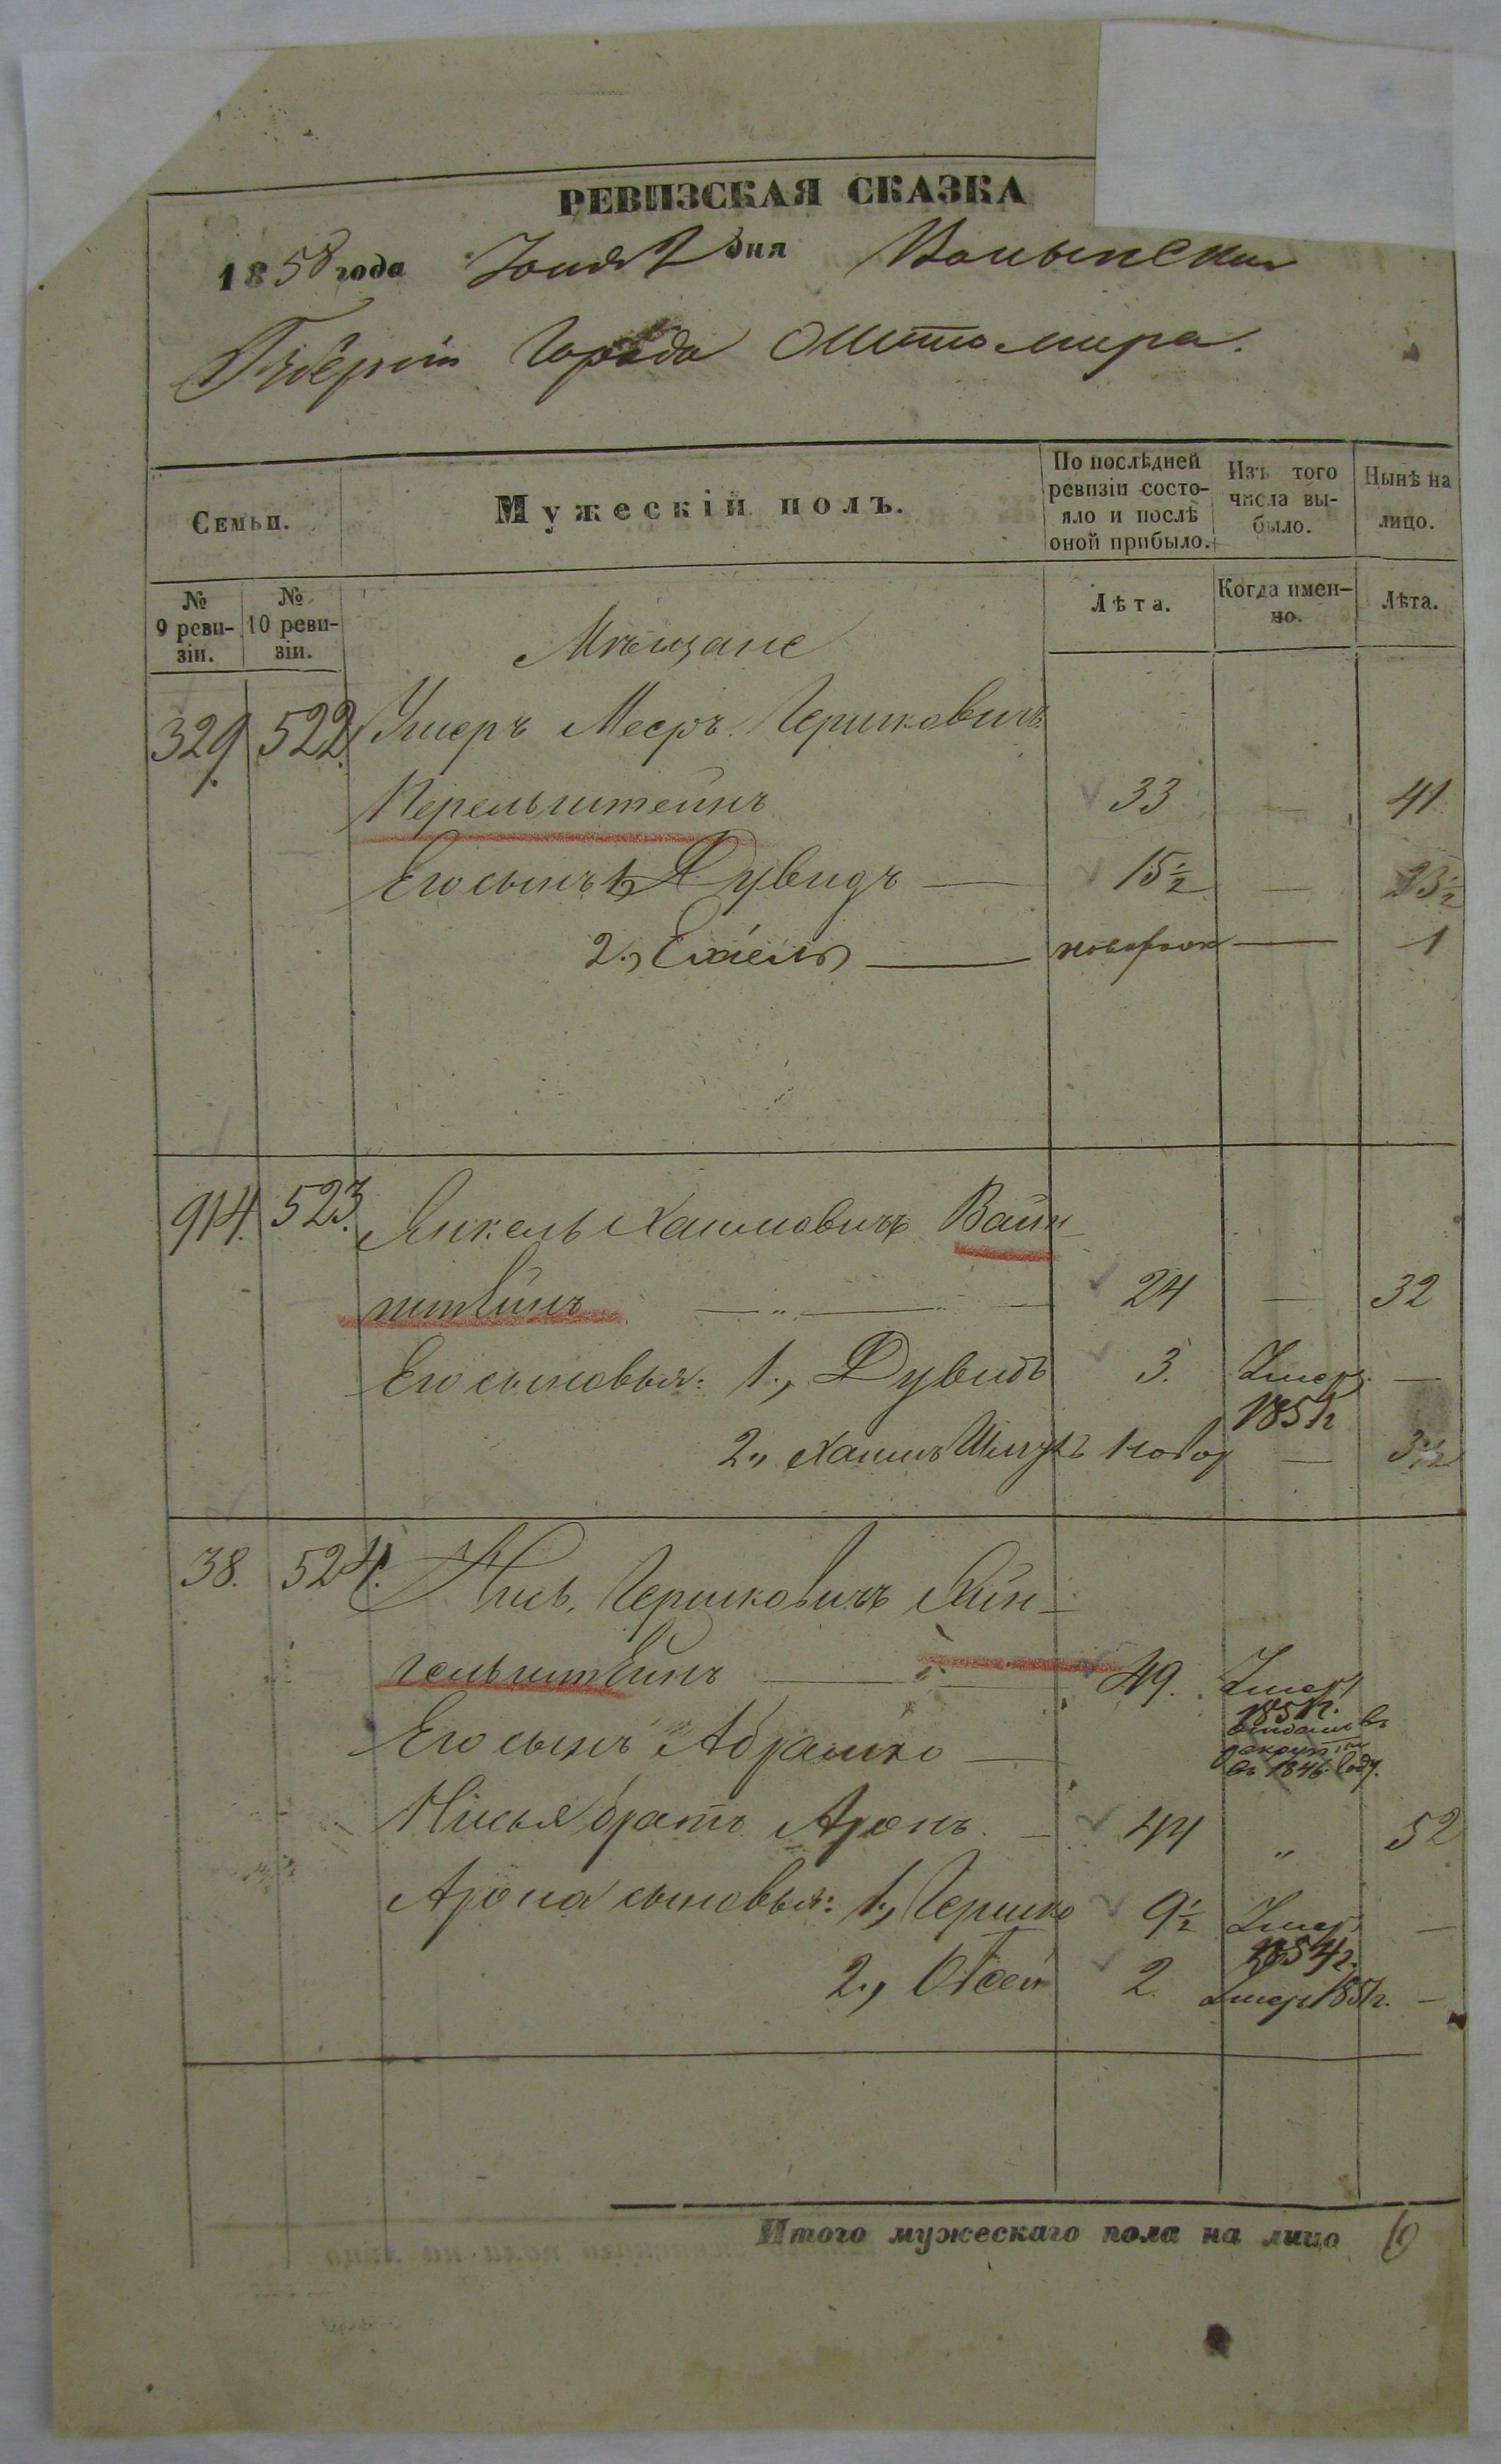 РЕВИЗСКАЯ СКАЗКА
1858 года Іюня 2 дня Волынской
Губерніи Города Житомира.
Семьи.
Мужескій полъ.
По послѣдней ревизіи состо-
яло и послѣ
оной прибыло.
Изъ того
числа вы-
было.
Нынѣ на
лицо.
№
9 реви-
зіи.
№
10 реви-
зіи.
Лѣта.
Когда имен-
но.
Лѣта.
Мѣщане
329. 522. Ушеръ Мееръ Гершковичъ
Перельштейнъ 33 — 41
Его сынъ 1, Дувидъ — 15½ — 23½
2., — новорож — 1
914. 523. Янкель Хаимовичъ Вайн-
штейнъ — „ — 24 — 32
Его сыновья: 1., Дувидъ 3. Умеръ —
185 г
2., Хаимъ новор — 3½
38. 524. Гершковичъ
гельштейнъ — 49. Умеръ
185 г.
Его сынъ Абрамко — отданъ въ
рекруты
въ 1846 году.
братъ Аронъ. — 44 „ 52
Арона сыновья: 1., Гершко 9½ Умеръ —
1854 г.
2., 2. Умеръ 185 г. —
Итого мужескаго пола на лицо 6